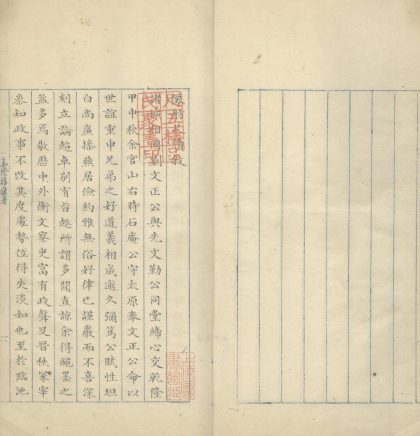 諸城相國劉文正公與先文勤公同堂締心交乾隆
甲申秋余官山右時石庵公守太原奉文正公命以
世誼重申兄弟之好道義相成適久彌篤公賦性坦
白高廉操無居儉約雅無俗好律己謹嚴而不喜深
刻立論超卓別有旨趣所謂多聞直諒余得繩墨之
益多焉敭歷中外衡文察吏富有政聲及晉秩冢宰
參知政事不改其度處勢位得失淡如也至於臨池